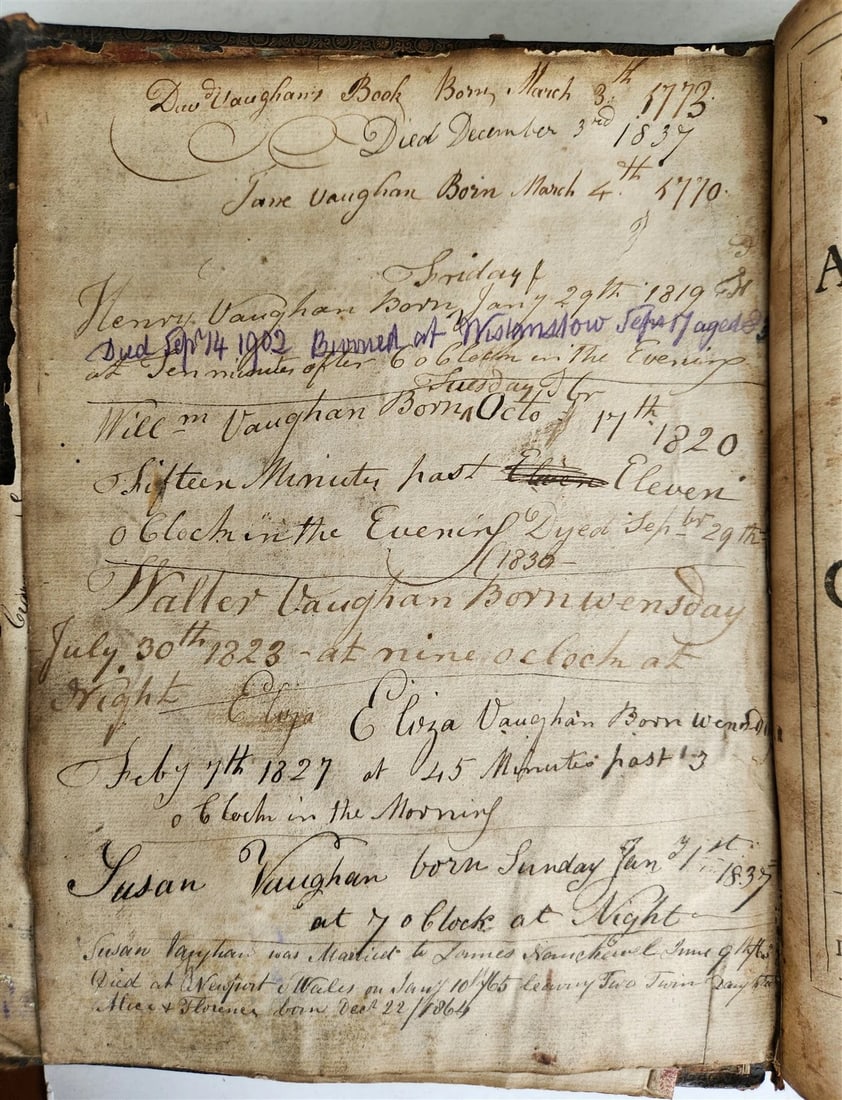 Davd Vaughan's Book Born March 3th 1773.
Died December 3rd 1837
Jane Vaughan Born March 4th 1770.
Friday
Henry Vaughan Born Jany 29th 1819
Died Sepr 14 1902 Burried at Wistanstow Sept 17 aged
at Ten minutes after 6 o Clock in the Evening
Tuesday
Willm Vaughan Born ^ Octobr 17th 1820
Fifteen Minutes past Eleven
o Clock in the Evening Dyed Sepbr 29th
1836
Walter Vaughan Born wensday
July 30th 1823 - at nine o clock at
Night Eliza Eliza Vaughan Born wensd
Feby 7th 1827 at 45 Minutes past 3
o Clock in the Morning
Susan Vaughan born Sunday Jany 1st 1837
at 7 o Clock at Night
Susan Vaughan was Married to James June 9th
Died at Newport Wales on Jany 10th/65 leaving Two Twin
Alice & Florence born Decr 22/1864